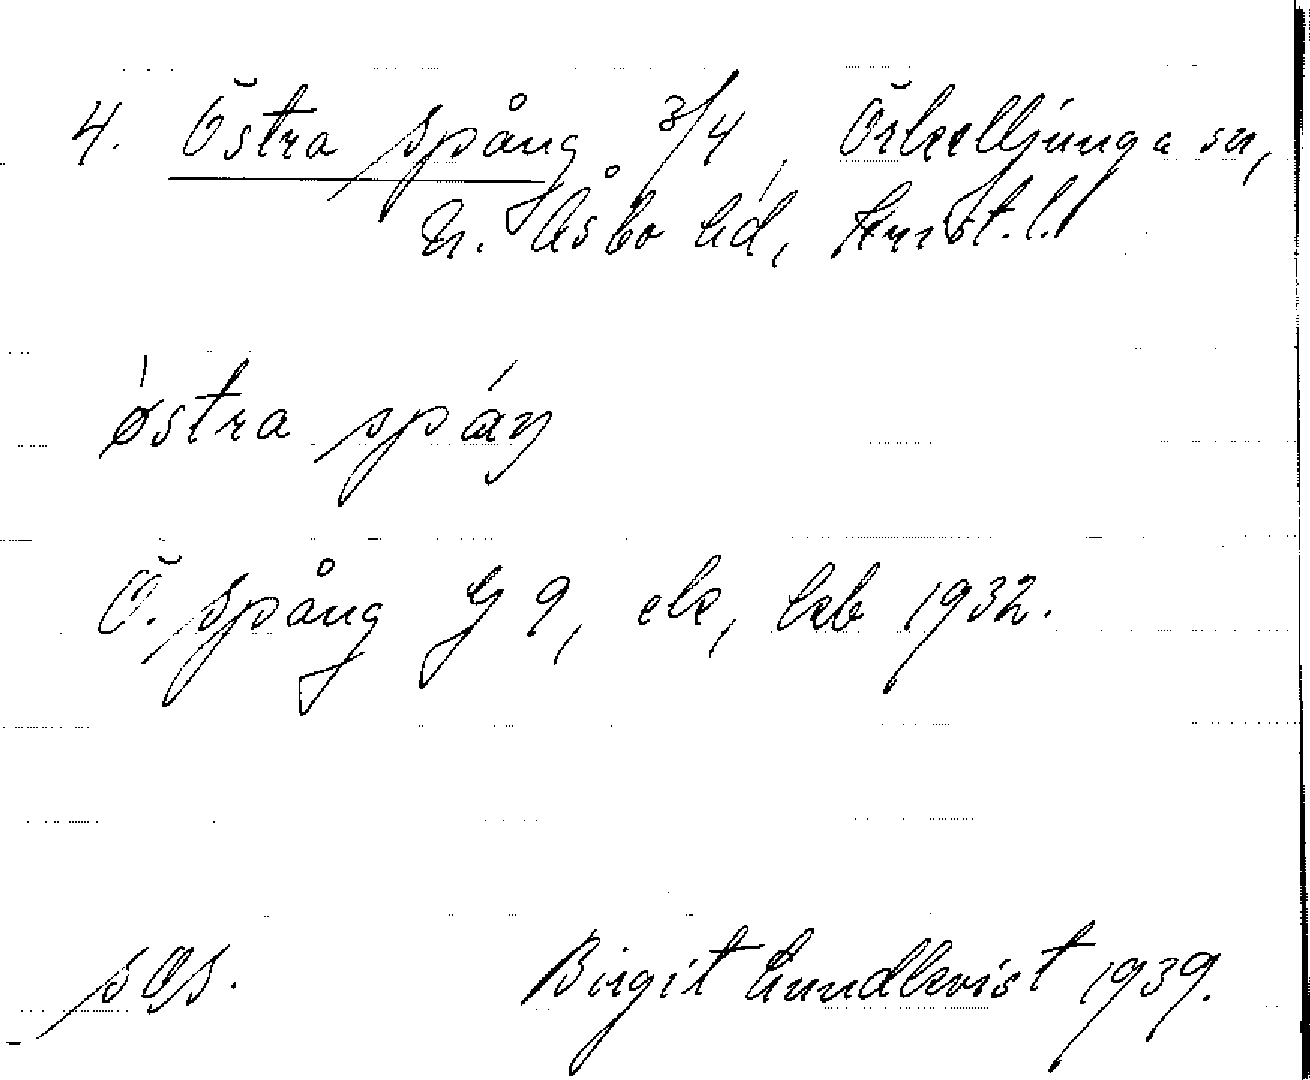 4. Östra Spång 3/4, Örkelljunga sn,
N. Åsbo hd, Krist. l.
østra spáŋ
Ö. Spång G 9, ek, lkb 1932.
sgs. Birgit Lundkvist 1939.